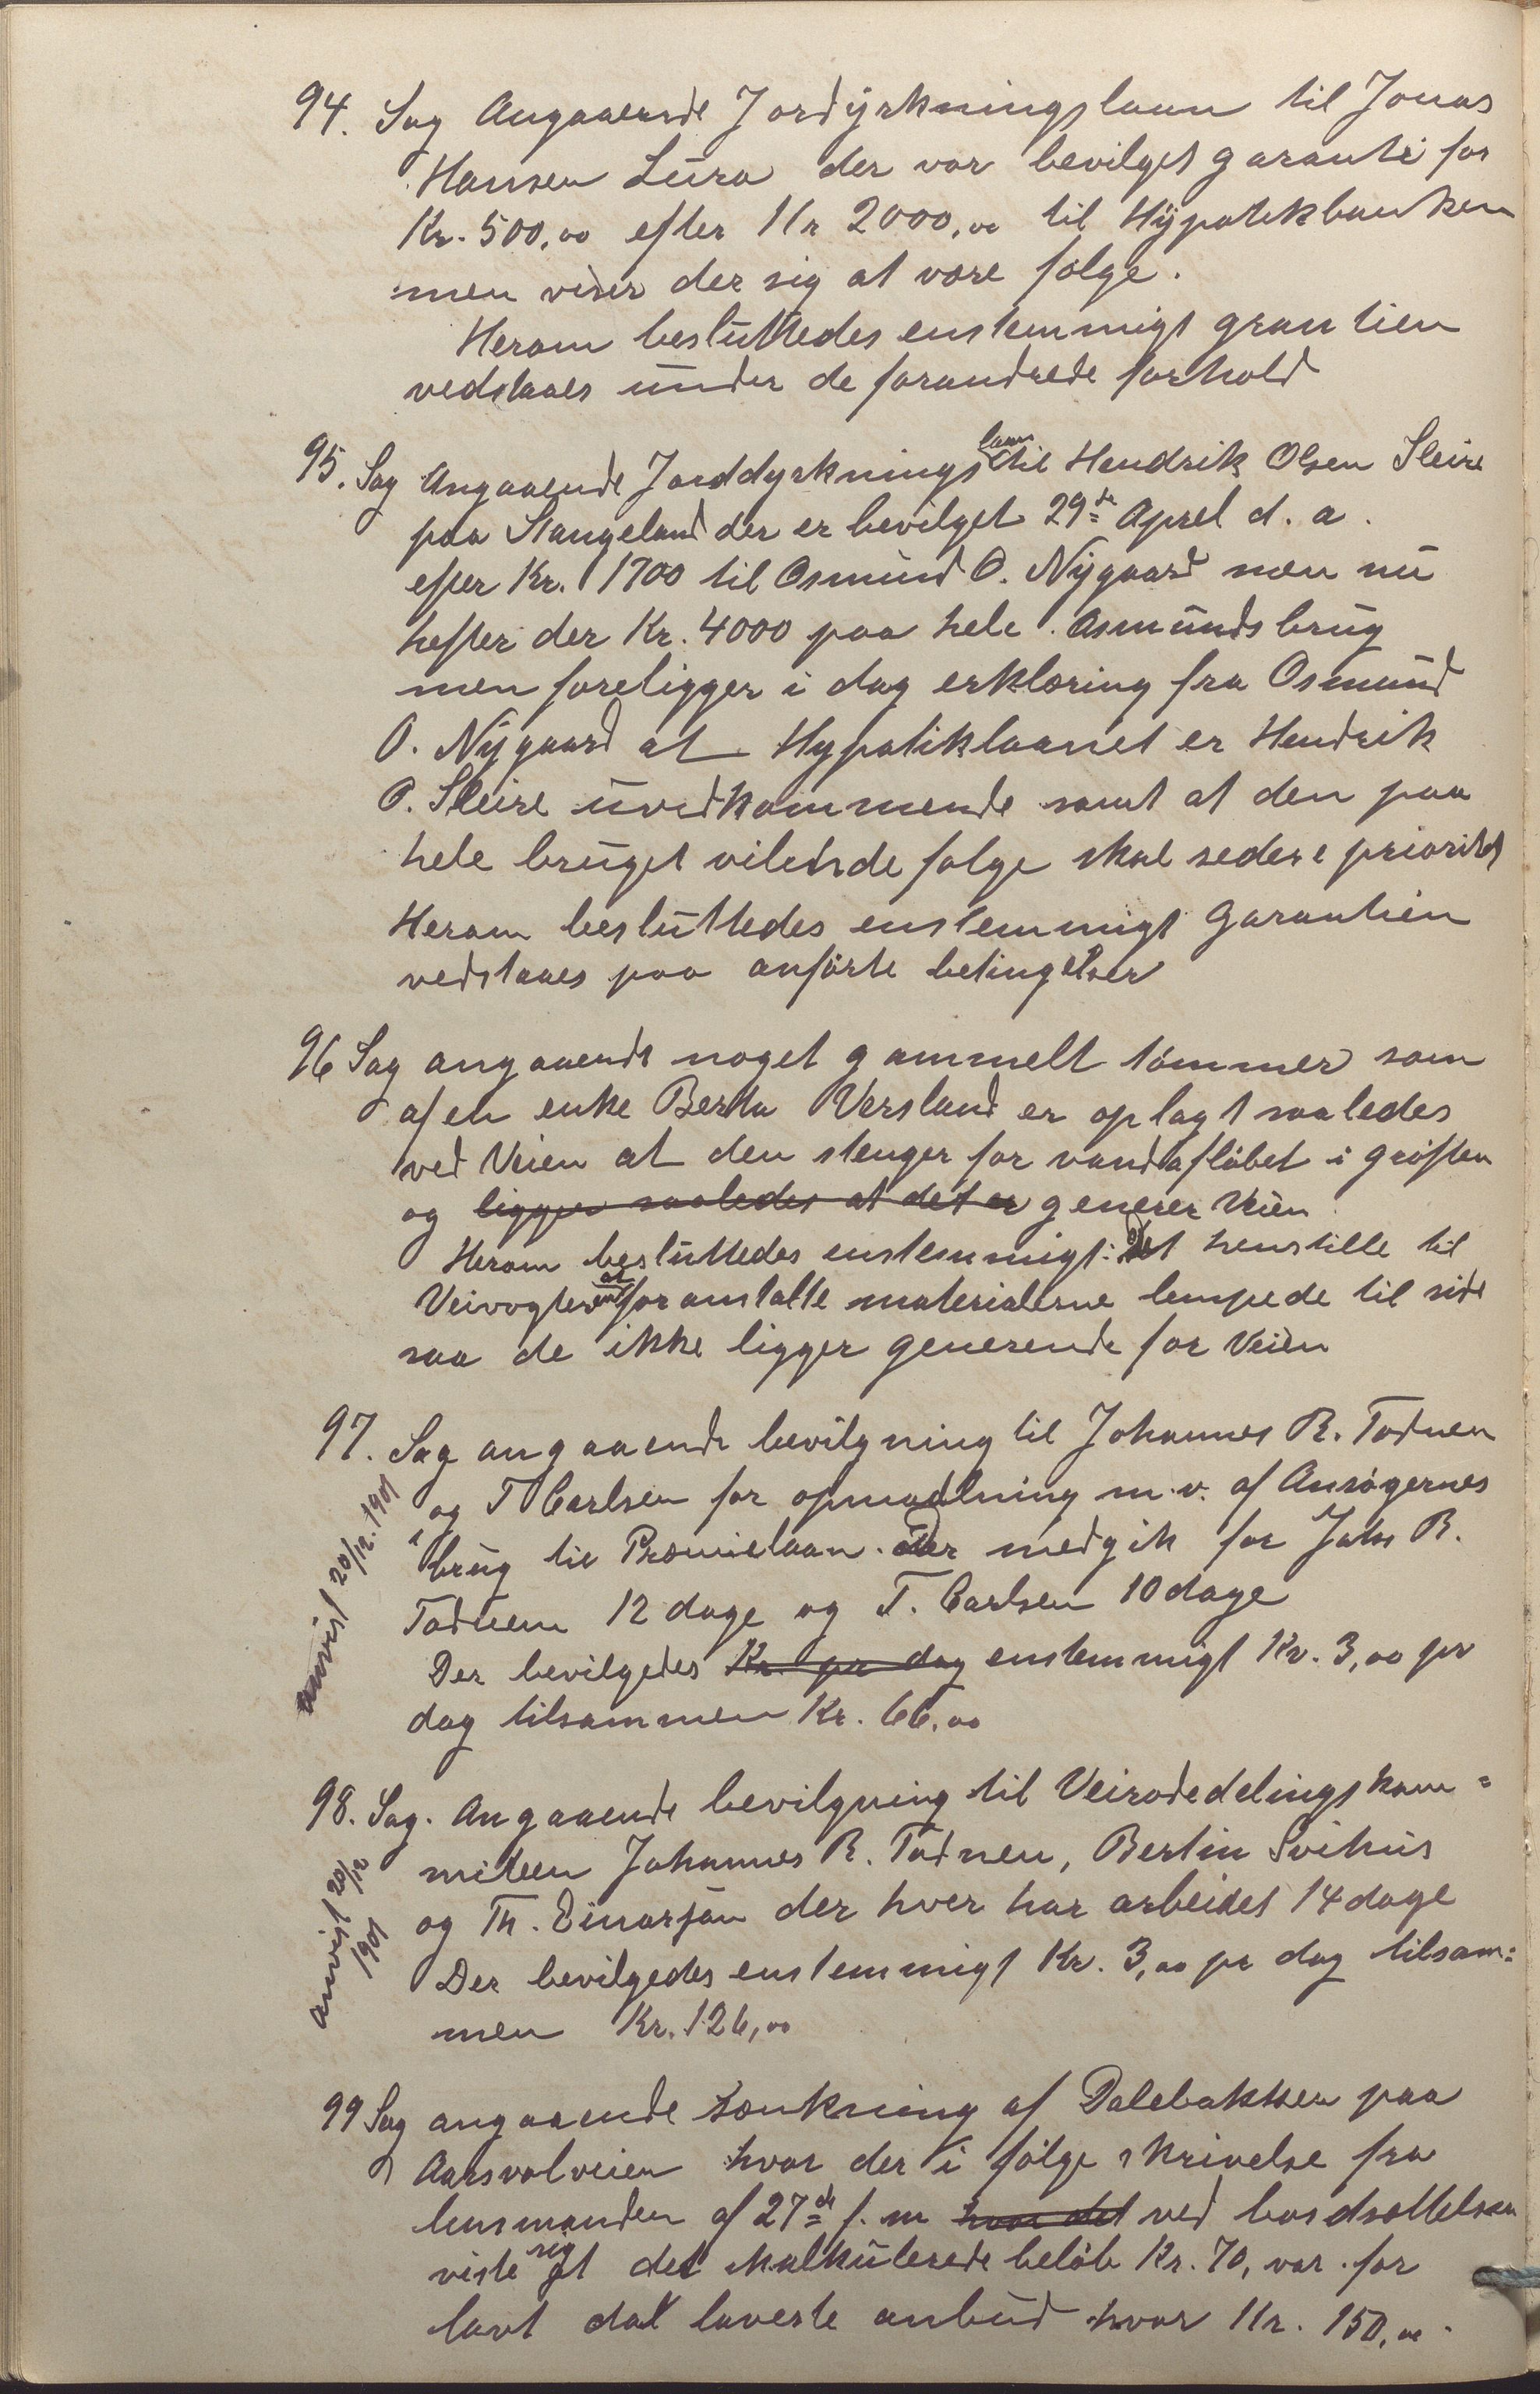 94. Sag Angaaende Jordyrkningslaan til Jonas
Hansen Lura der var bevilget garanti for
Kr. 500,00 efter Kr 2000,00 til Hypotekbanken
men viser der sig at være følge.
Herom besluttedes enstemmigt grantien
vedstaaes under de forandrede forhold
95. Sag Angaaende Jorddyrkningslaan til Hendrik Olsen Sleire
paa Stangeland der er bevilget 29de April d. a.
efter Kr. 1700 til Osmund O. Nygaard men nu
hefter der Kr. 4000 paa hele Asmunds brug
men foreligger i dag erklæring fra Osmund
O. Nygaard at Hypotiklaanet er Hendrik
O. Sleire uvedkommende samt at den paa
hele bruget vilende følge skal sedere prioritet
Herom besluttedes enstemmigt Garantien
vedstaaes paa anførte betingelser
96 Sag angaaende noget gammelt tømmer som
af en enke Berta Versland er oplagt saaledes
ved Veien at den stenger for vandafløbet i grøften
og ligger saaledes at det er generer Veien
Herom besluttedes enstemmigt: At henstille til
Veivogteren at foranstalte materialerne lempede til side
saa de ikke ligger generende for Veien
97. Sag angaaende bevilgning til Johannes R. Todnem
og T Carlsen for opmaalning m.v. af Ansøgernes
brug til Præmielaan. Der medgik for Johs R.
Todnem 12 dage og T. Carlsen 10 dage
Der bevilgedes Kr. pr dag enstemmigt Kr. 3,00 pr
dag tilsammen Kr. 66,00
anvist 20/12. 1901
98. Sag. Angaaende bevilgning til Veirodedelingskom=
miteen Johannes R. Todnem, Bertin Svihus
og Th. Einarsen der hver har arbeidet 14 dage
Der bevilgedes enstemmigt Kr. 3,00 pr dag tilsam=
men Kr. 126,00
anvist 20/12
1901
99 Sag angaaende sænkning af Dalebakken paa
Aarsvolveien hvor der i følge skrivelse fra
lensmanden af 27de f. m hvor det ved bordsættelsen
viste sig at det kalkulerede beløb Kr. 70, var for
lavt dat laveste anbud hvar Kr. 150,00.